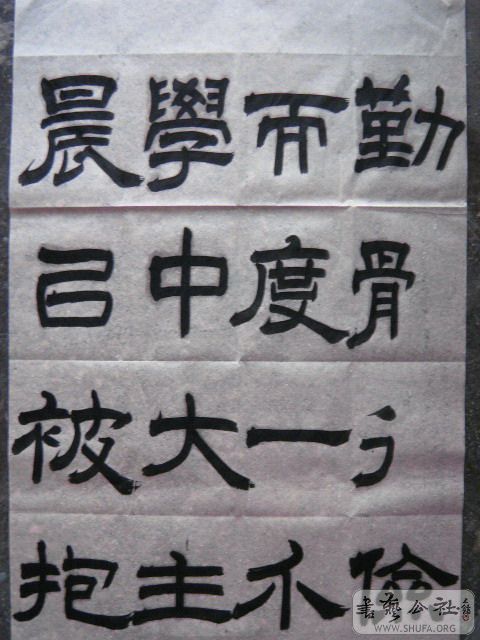 晨學而勤
己中度骨
被大一彳
抱主儉
書藝公社
WWW.SHUFA.ORG